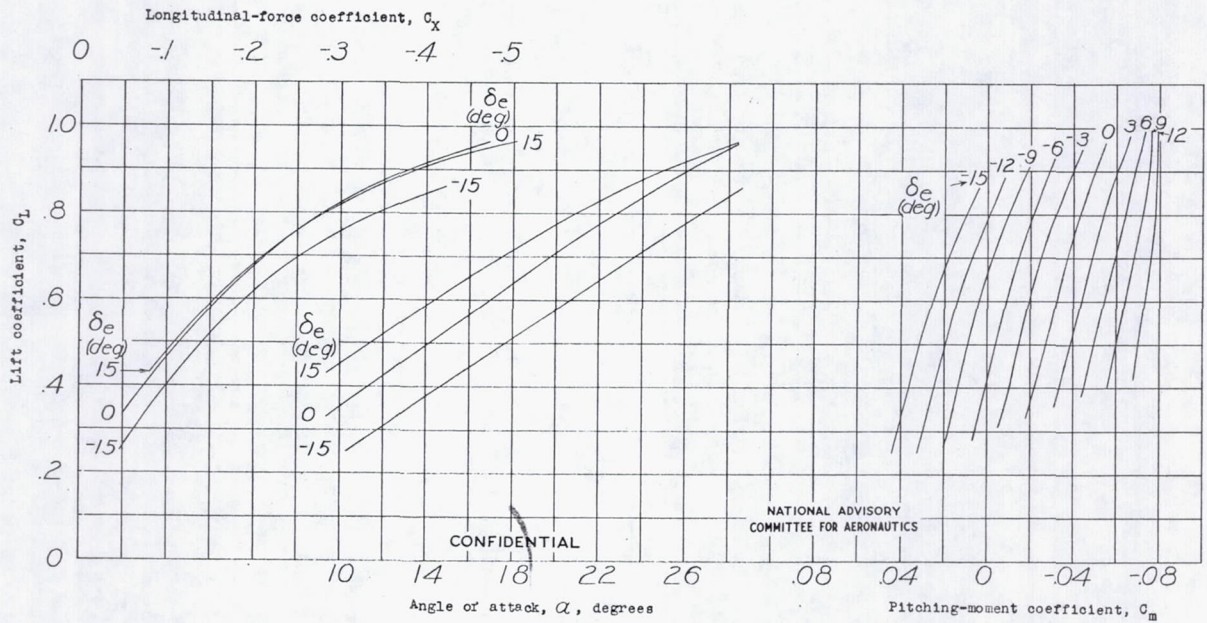 Longitudinal-force coefficient, C_X
0 -.1 -.2 -.3 -.4 -.5
Lift coefficient, C_L
1.0
.8
.6
.4
.2
0
δe
(deg)
0
15
-15
δe
(deg)
15
0
-15
δe
(deg)
15
0
-15
δe
(deg)
-15 -12 -9 -6 -3 0 3 6 9
-12
CONFIDENTIAL
NATIONAL ADVISORY
COMMITTEE FOR AERONAUTICS
10 14 18 22 26
.08 .04 0 -.04 -.08
Angle of attack, α, degrees
Pitching-moment coefficient, C_m